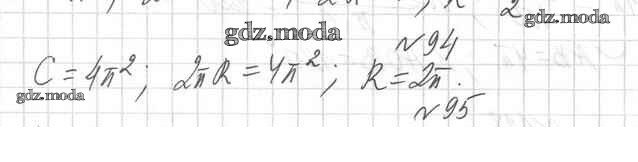 2
gdz.moda
gdz.moda
№94
C = 4π²; 2πR = 4π²; R = 2π.
gdz.moda
№95